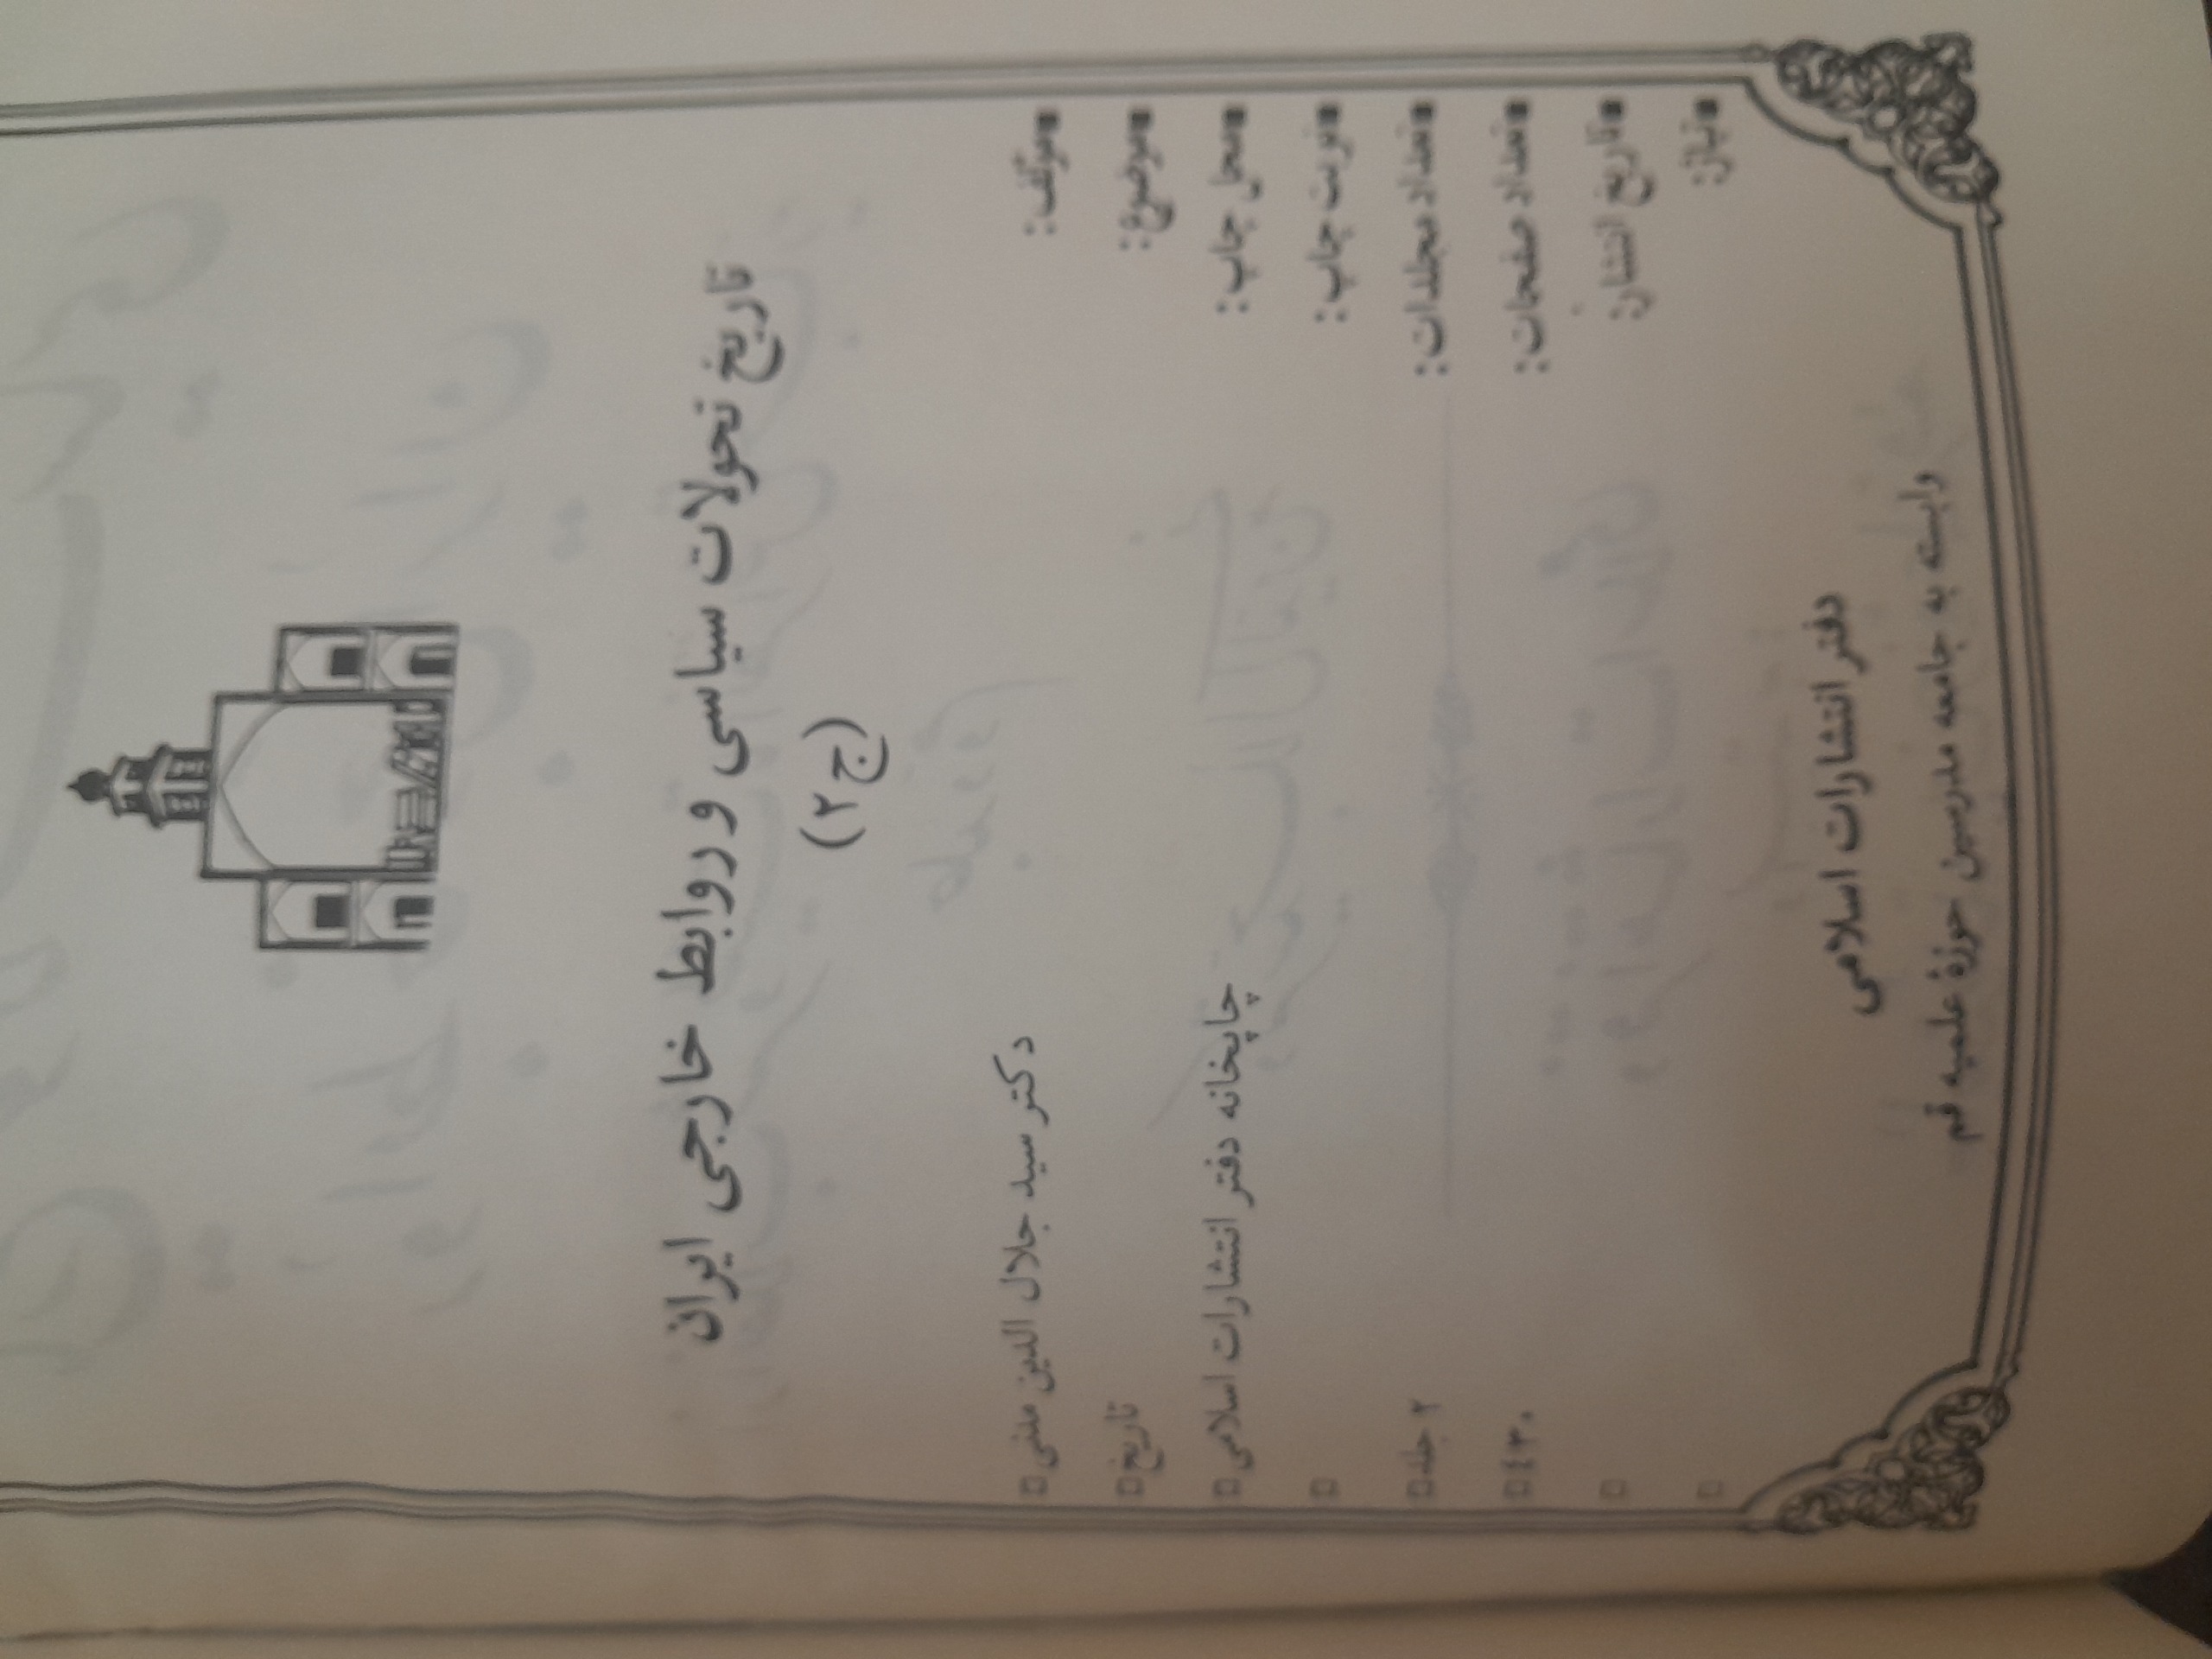 تاریخ تحولات سیاسی و روابط خارجی ایران
(ج۲)
■مؤلف: □ دکتر سید جلال الدین مدنی
■موضوع: □ تاریخ
■محل چاپ: □ چاپخانه دفتر انتشارات اسلامی
■نوبت چاپ: □
■تعداد مجلدات: □ ۲ جلد
■تعداد صفحات: □ ٤٣٠
■تاریخ انتشار: □
■تیراژ: □
دفتر انتشارات اسلامی
وابسته به جامعه مدرسین حوزهٔ علمیه قم